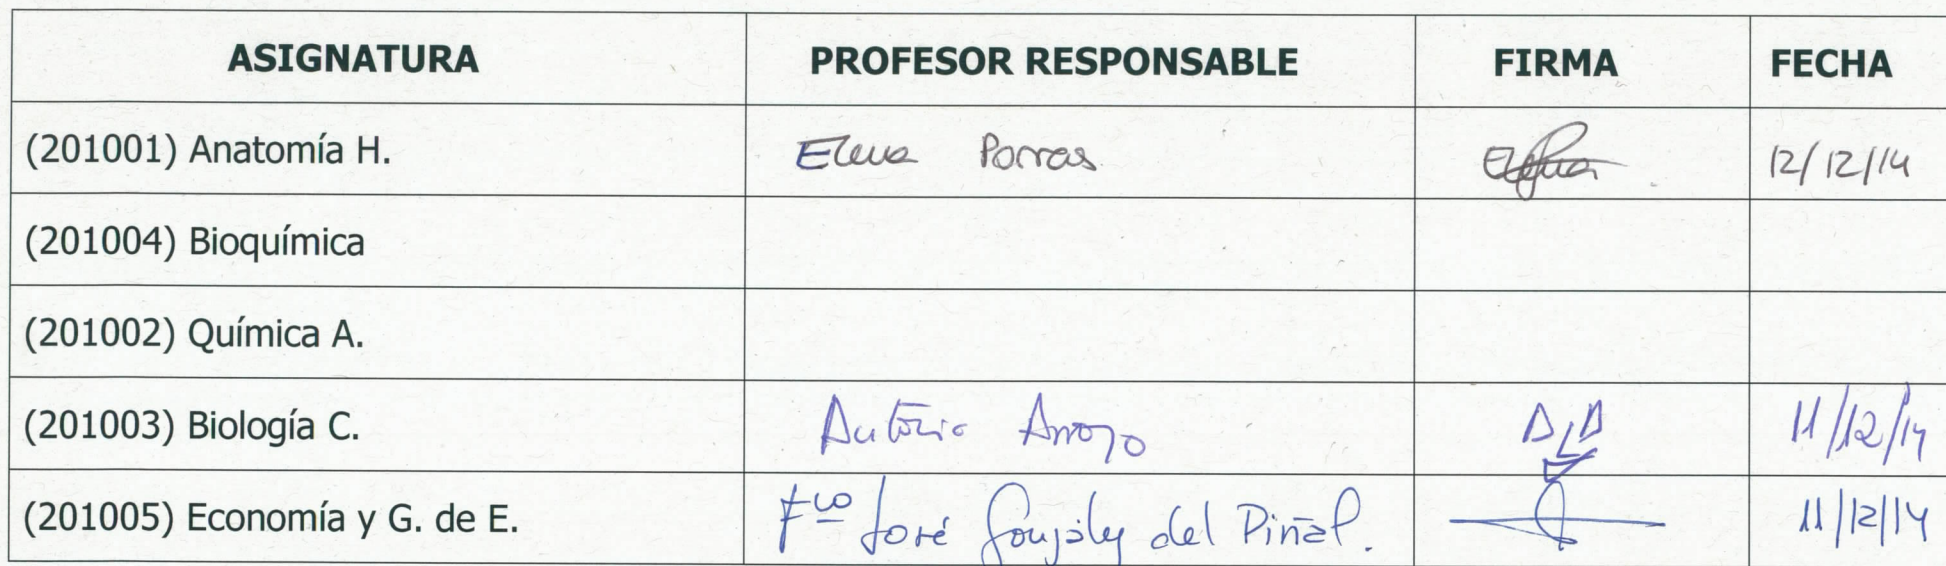 ASIGNATURA PROFESOR RESPONSABLE FIRMA FECHA
(201001) Anatomía H. Elena Porras 12/12/14
(201004) Bioquímica
(201002) Química A.
(201003) Biología C. Antonio Arroyo 11/12/14
(201005) Economía y G. de E. Fco José González del Piñal. 11/12/14